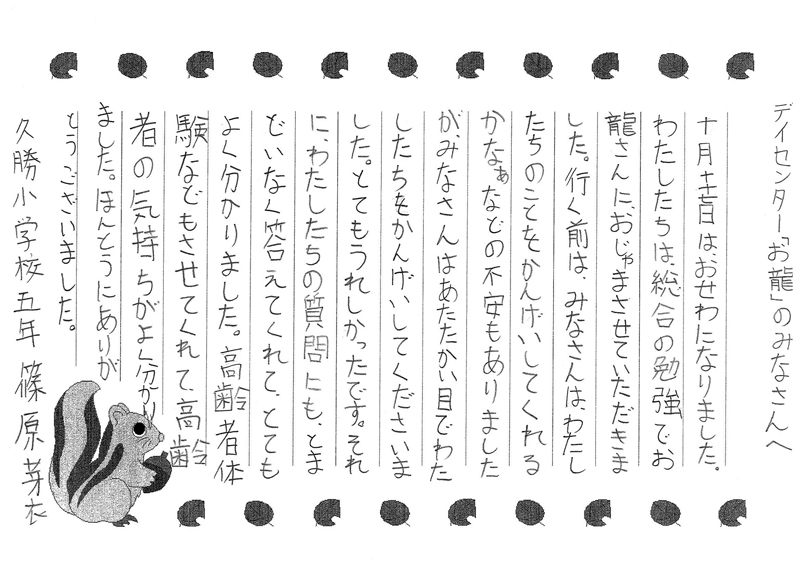 デイセンター「お龍」のみなさんへ
十月十七日は、おせわになりました。
わたしたちは、総合の勉強でお
龍さんに、おじゃまさせていただきま
した。行く前は、みなさんは、わたし
たちのことをかんげいしてくれる
かなぁなどの不安もありました
が、みなさんはあたたかい目でわた
したちをかんげいしてくださいま
した。とてもうれしかったです。それ
に、わたしたちの質問にも、とま
どいなく答えてくれて、とても
よく分かりました。高齢者体
験などもさせてくれて、高齢
者の気持ちがよく分かり
ました。ほんとうにありが
とうございました。
久勝小学校五年 篠原芽衣